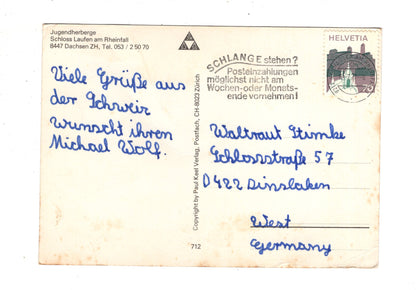 Jugendherberge
Schloss Laufen am Rheinfall
8447 Dachsen ZH, Tel. 053 / 2 50 70
Viele Grüße aus
der Schweiz
wünscht ihnen
Michael Wolf.
Copyright by Paul Keel Verlag, Postfach, CH-8023 Zürich
712
SCHLANGE stehen?
Posteinzahlungen
möglichst nicht am
Wochen- oder Monats-
ende vornehmen!
HELVETIA
70
Waltraut
Schlossstraße 57
D422 Dinslaken
West
Germany